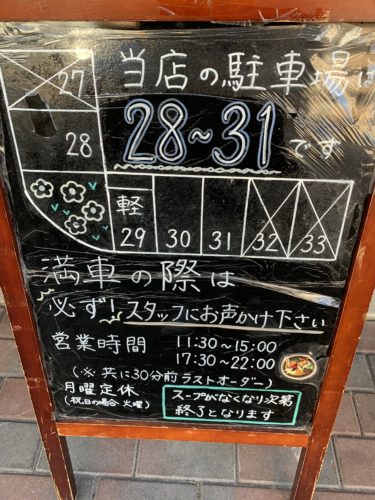 当店の駐車場は
28~31です
27
28
軽
29 30 31 32 33
満車の際は
必ず!スタッフにお声かけ下さい
営業時間 11:30~15:00
17:30~22:00
(※共に30分前ラストオーダー)
月曜定休
(祝日の場合 火曜)
スープがなくなり次第
終了となります